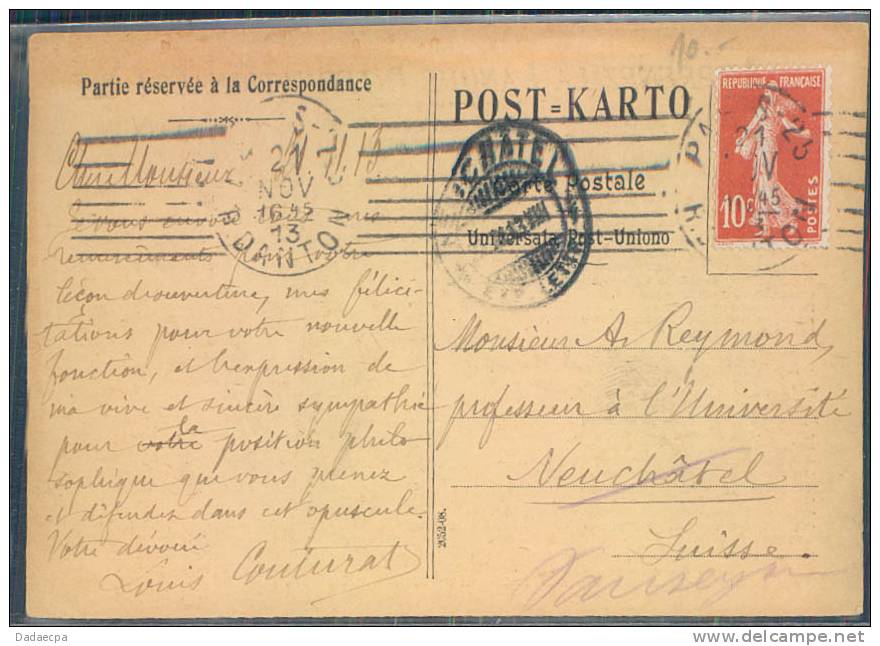 10.-
Partie réservée à la Correspondance
POST=KARTO
Carte Postale
Universala Post-Uniono
REPUBLIQUE FRANÇAISE
10c
POSTES
21
NOV
1645
13
R. DANTON
Cher Monsieur 11.13
Je vous envoie mes
remerciements pour votre
leçon d'ouverture, mes félici-
tations pour votre nouvelle
fonction, et l'expression de
ma vive et sincère sympathie
pour votre la position philo
sophique que vous prenez
et défendez dans cet opuscule.
Votre dévoué
Louis Couturat
Monsieur A. Reymond,
professeur à l'Université
Neuchâtel
Suisse
Vauseyon
2052-08.
Dadaecpa
www.delcampe.net